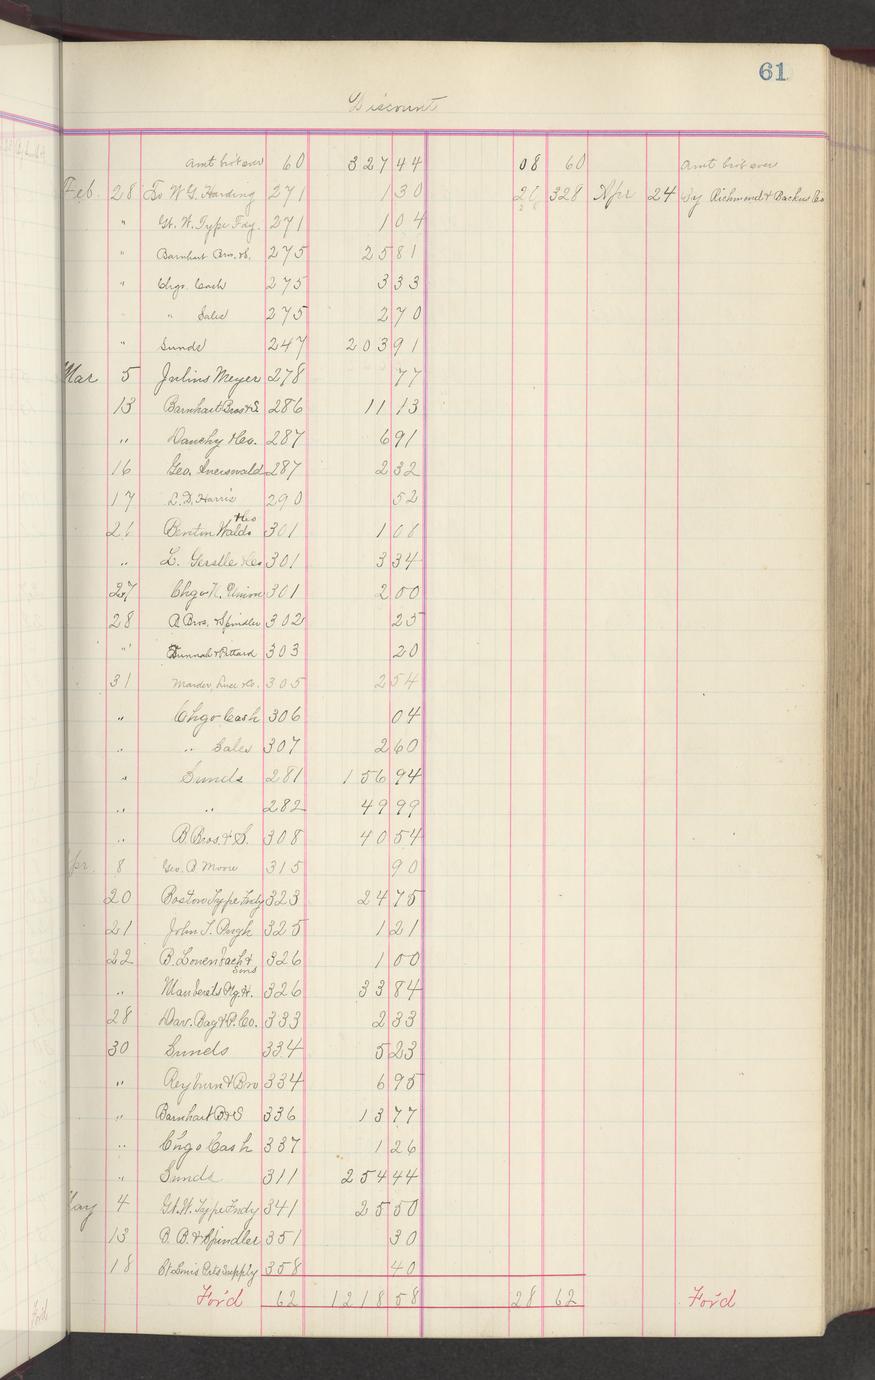 61
Discount
Amt bro't over 60 327 44 08 60 Amt bro't over
Feb. 28 To W. G. Harding 271 1 30 328 Apr 24 By Richmond & Backus Co
" Gt. W. Type Fdy. 271 1 04
" Barnhart Bros. & S. 275 25 81
" Chgo. Cash 275 3 33
" " Sales 275 2 70
" Sunds 247 203 91
Mar 5 Julius Meyer 278 77
13 Barnhart Bros & S 286 11 13
" Dauchy & Co. 287 6 91
16 Geo. Auerswald 287 2 32
17 L. D. Harris 290 52
21 Benton Waldo & Co 301 1 08
" L. Gerstle & Co 301 3 34
27 Chgo N. Union 301 2 00
28 B Bros. & Spindler 302 25
" & Pittard 303 20
31 Marder, Luse & Co. 305 2 54
" Chgo Cash 306 04
" " Sales 307 2 60
" Sunds 281 156 94
" " 282 49 99
" B. Bros. & S. 308 40 54
pr. 8 Geo. B Moore 315 90
20 Boston Type Fndy 323 24 75
21 John T. Pugh 325 1 21
22 B. & Sons 326 1 00
" 326 33 84
28 Dav. Bag & P. Co. 333 2 33
30 Sunds 334 5 23
" Reyburn & Bro 334 6 95
" Barnhart B & S 336 13 77
" Chgo Cash 337 1 26
" Sunds 311 254 44
ay 4 Gt. W. Type Fndy 341 25 50
13 B. B. & Spindler 351 30
18 St Louis Ptrs Supply 358 40
For'd 62 1218 58 28 62 For'd
For'd